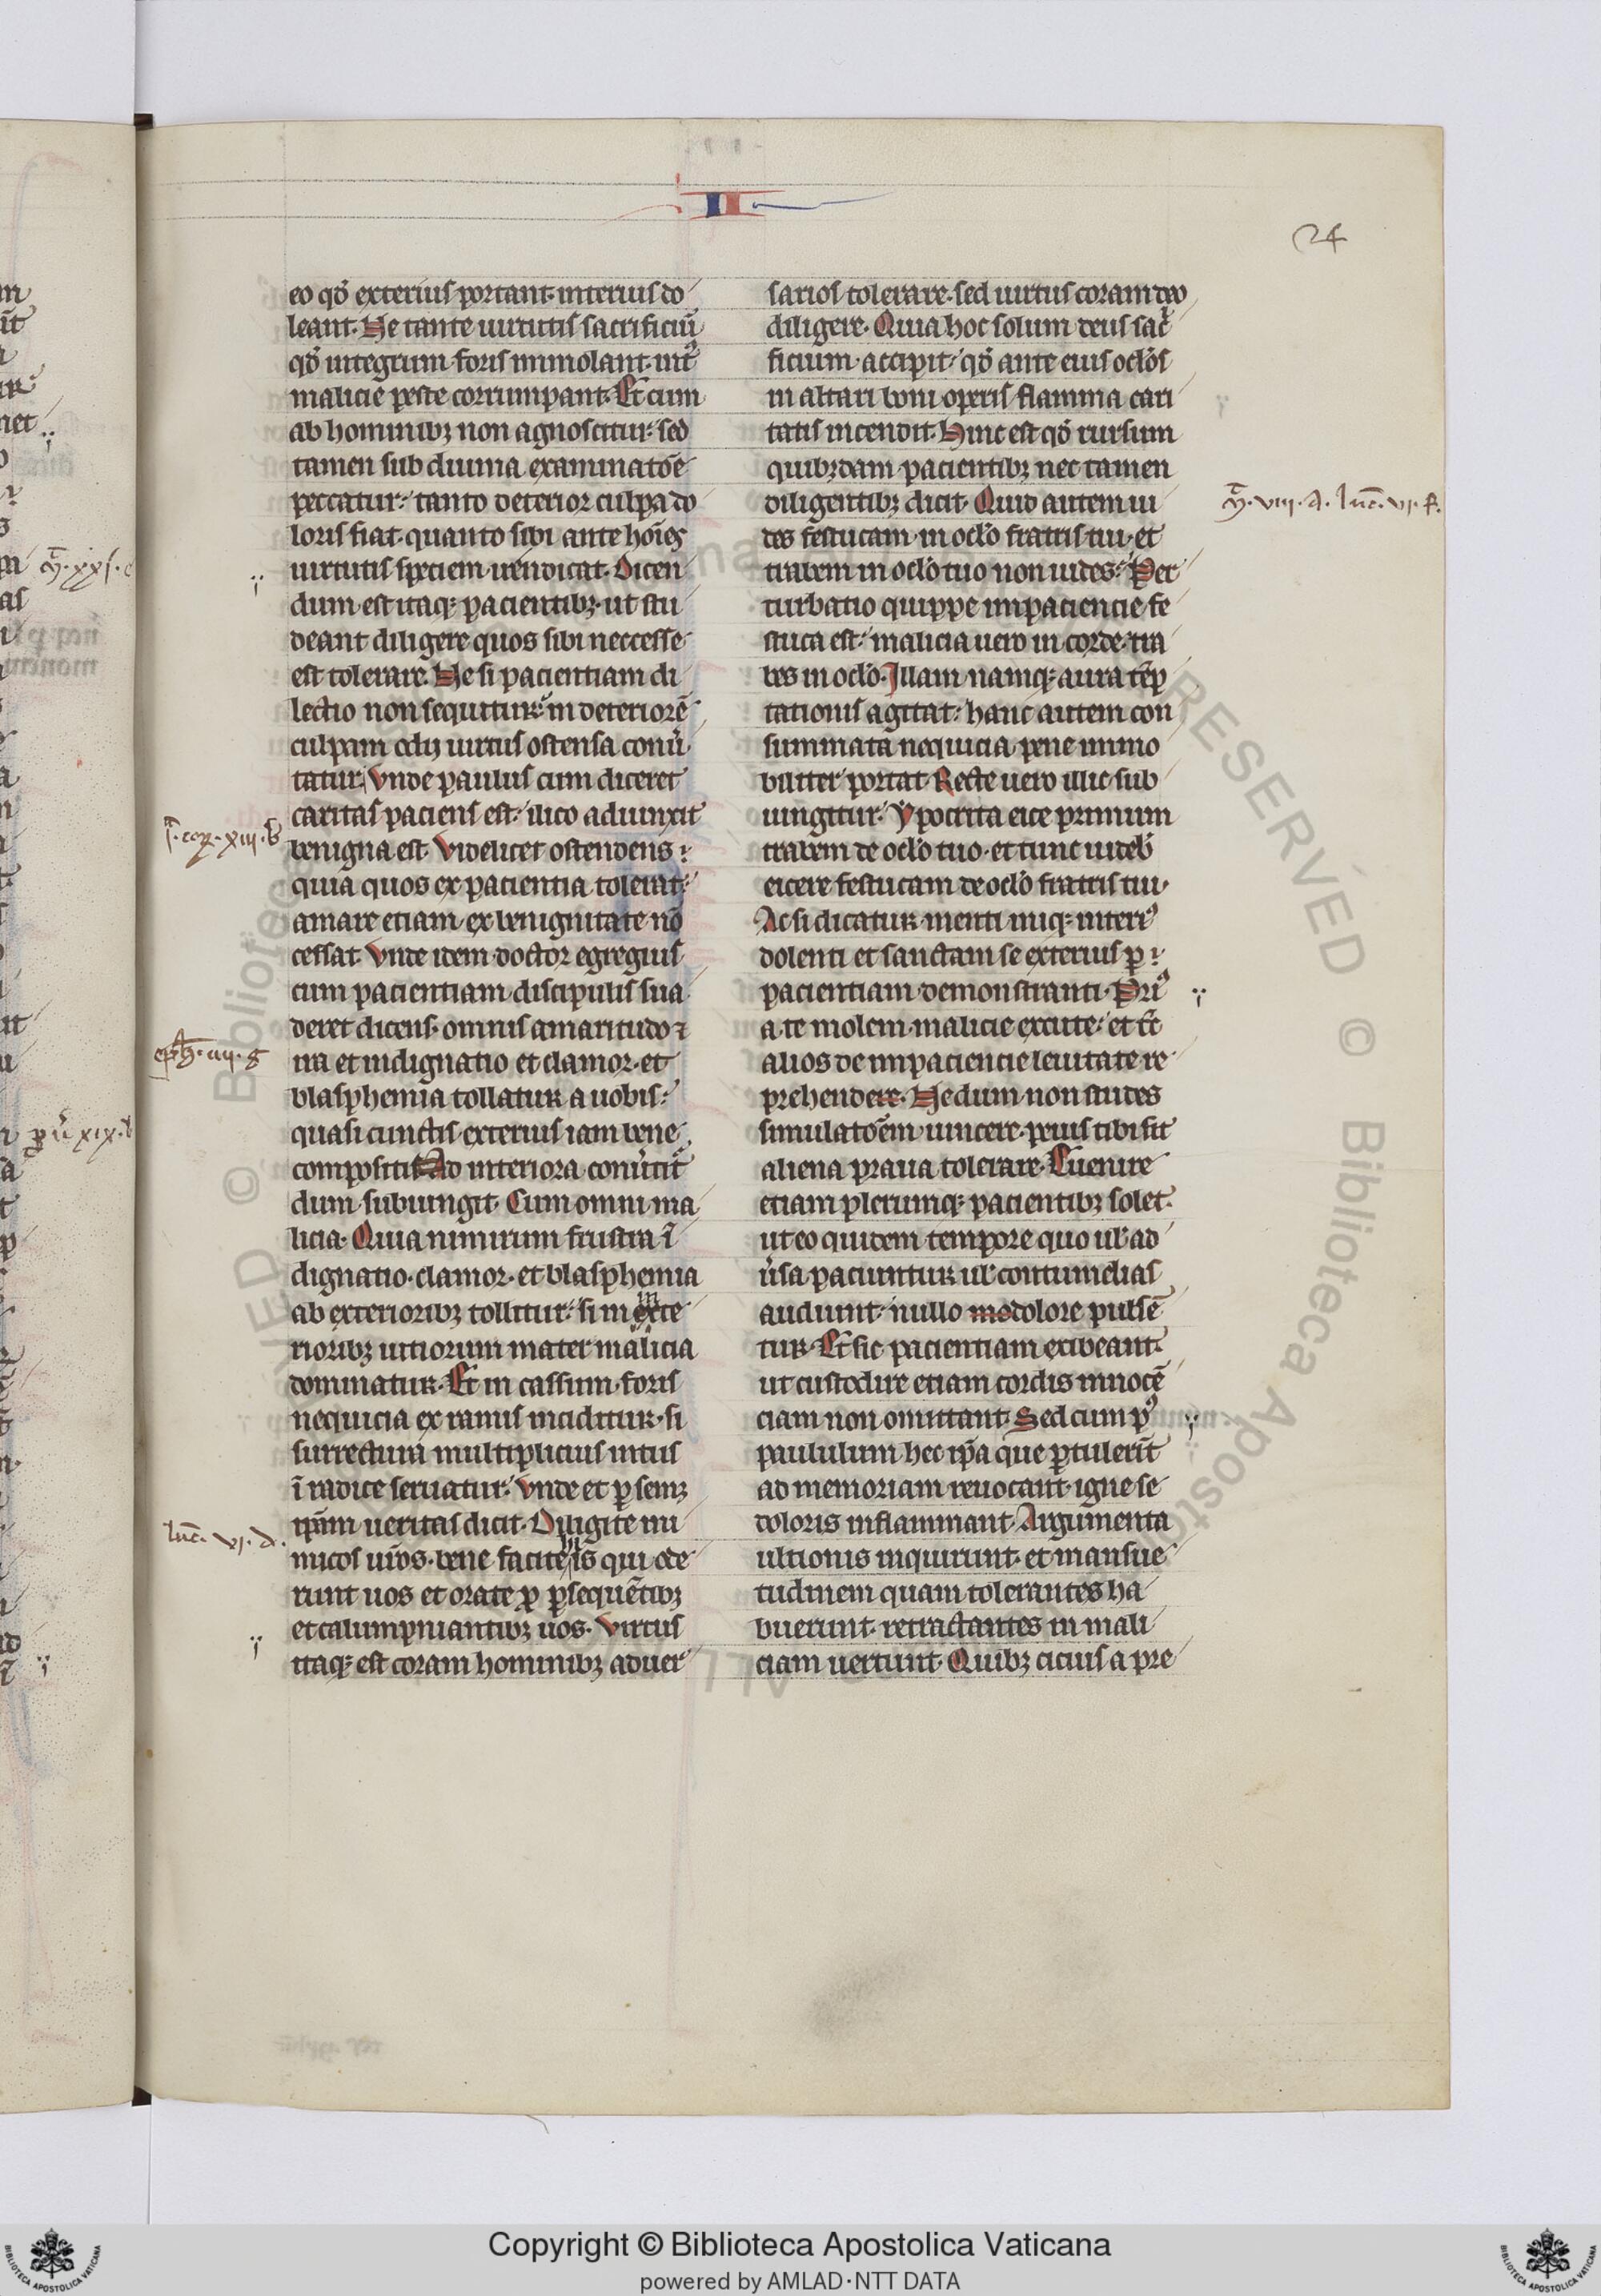 II
24
eo qđ exterius portant· interius do
leant. Ne tante uirtutis sacrificiū
qđ integrum foris immolant· int᷒
malicie peste corrumpant. Et cum
ab hominibꝫ non agnoscitur· sed
tamen sub diuina examinatōe
peccatur· tanto deterior culpa do
loris fiat· quanto sibi ante hoīes
uirtutis speciem uendicat. Dicen
dum est itaqꝫ pacientibꝫ· ut stu
deant diligere quos sibi neccesse
est tolerare. Ne si pacientiam di
lectio non sequitur· in deteriorē
culpam odij uirtus ostensa conu̾
tatur. Vnde paulus cum diceret
caritas paciens est· ilico adiunxit
benigna est. Videlicet ostendens·
quia quos ex pacientia tolerat·
amare etiam ex benignitate nō
cessat. Vnde idem doctor egregius
cum pacientiam discipulis sua
deret dicens· omnis amaritudo ⁊
ira et indignatio et clamor· et
blasphemia tollatur a uobis·
quasi cunctis exterius iam bene
compositis. Ad interiora conu̾tit᷒
dum subiungit. Cum omni ma
licia. Quia nimirum frustra ī
dignatio· clamor· et blasphemia
ab exterioribꝫ tollitur· si in exte
in
rioribꝫ uitiorum mater malicia
dominatur. Et in cassum foris
nequicia ex ramis inciditur· si
surrectura multiplicius intus
ī radice seruatur. Vnde et ꝑ semꝫ
ip̄am ueritas dicit. Diligite ini
micos ur̄os· bene facite hīs qui ode
runt uos et orate ꝓ ꝑsequētibꝫ
et calumpniantibꝫ uos. Virtus
itaqꝫ est coram hominibꝫ aduer
sarios tolerare· sed uirtus coram deo
diligere. Quia hoc solum deus sacⁱ
ficium accipit· qđ ante eius oclōs
in altari boni operis flamma cari
tatis incendit. Hinc est qđ rursum
quibꝫdam pacientibꝫ nec tamen
diligentibꝫ dicit. Quid autem ui
des festucam in oclō fratris tui· et
trabem in oclō tuo non uides· Per
turbatio quippe impaciencie fe
stuca est· malicia uero in corde· tra
bes in oclō. Illam namqꝫ aura tēp
tationis agitat· hanc autem con
summata nequicia pene immo
biliter portat. Recte uero illic sub
iungitur. Ypocrita eice primum
trabem de oclō tuo· et tunc uideb̾
eicere festucam de oclō fratris tui·
Ac si dicatur menti iniqꝫ interiꝰ
dolenti et sanctam se exterius ꝑ
pacientiam demonstranti. Priꝰ
a te molem malicie excute· et tc̄
alios de impaciencie leuitate re
prehendere. Ne dum non studes
simulatōem uincere· peius tibi sit
aliena praua tolerare. Euenire
etiam plerumqꝫ pacientibꝫ solet·
ut eo quidem tempore quo ul̾ ad
u̾sa paciuntur ul̾ contumelias
audiunt· nullo mo dolore pulsē
tur. Et sic pacientiam exibeant·
ut custodire etiam cordis innocē
ciam non omittant. Sed cum pꝰ
paululum hec ip̄a que ꝑtulerīt
ad memoriam reuocant· igne se
doloris inflammant. Argumenta
ultionis inquirunt· et mansue
tudinem quam tolerantes ha
buerunt· retractantes in mali
ciam uertunt. Quibꝫ cicius a pre
j. coꝝ. xiij. b
eph̄. iiij. g
luc̄. vj. d.
m̄. viii. A. luc̄. vj. f.
m̄. xxj. c
ꝓu̾ xix. b
Copyright © Biblioteca Apostolica Vaticana
powered by AMLAD·NTT DATA
BIBLIOTECA APOSTOLICA VATICANA
BIBLIOTECA APOSTOLICA VATICANA